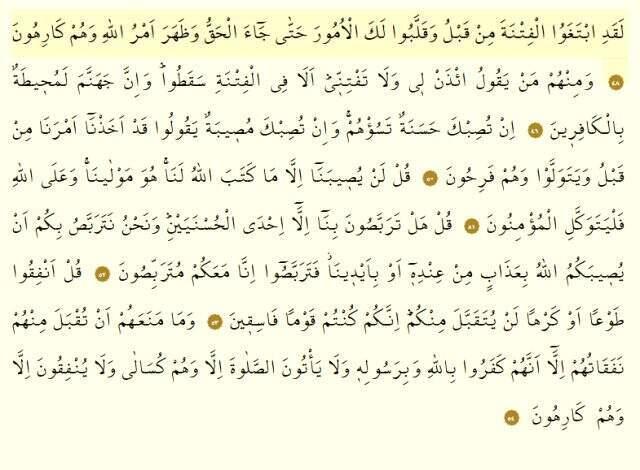 لَقَدِ ابْتَغَوُا الْفِتْنَةَ مِنْ قَبْلُ وَقَلَّبُوا لَكَ الْاُمُورَ حَتّٰى جَٓاءَ الْحَقُّ وَظَهَرَ اَمْرُ اللّٰهِ وَهُمْ كَارِهُونَ
﴿٤٨﴾ وَمِنْهُمْ مَنْ يَقُولُ ائْذَنْ لٖى وَلَا تَفْتِنّٖىؕ اَلَا فِى الْفِتْنَةِ سَقَطُواؕ وَاِنَّ جَهَنَّمَ لَمُحٖيطَةٌ
بِالْكَافِرٖينَ ﴿٤٩﴾ اِنْ تُصِبْكَ حَسَنَةٌ تَسُؤْهُمْۚ وَاِنْ تُصِبْكَ مُصٖيبَةٌ يَقُولُوا قَدْ اَخَذْنَٓا اَمْرَنَا مِنْ
قَبْلُ وَيَتَوَلَّوْا وَهُمْ فَرِحُونَ ﴿٥٠﴾ قُلْ لَنْ يُصٖيبَنَٓا اِلَّا مَا كَتَبَ اللّٰهُ لَنَاۚ هُوَ مَوْلٰينَاۚ وَعَلَى اللّٰهِ
فَلْيَتَوَكَّلِ الْمُؤْمِنُونَ ﴿٥١﴾ قُلْ هَلْ تَرَبَّصُونَ بِنَٓا اِلَّٓا اِحْدَى الْحُسْنَيَيْنِؕ وَنَحْنُ نَتَرَبَّصُ بِكُمْ اَنْ
يُصٖيبَكُمُ اللّٰهُ بِعَذَابٍ مِنْ عِنْدِهٖٓ اَوْ بِاَيْدٖينَاؗ فَتَرَبَّصُٓوا اِنَّا مَعَكُمْ مُتَرَبِّصُونَ ﴿٥٢﴾ قُلْ اَنْفِقُوا
طَوْعًا اَوْ كَرْهًا لَنْ يُتَقَبَّلَ مِنْكُمْؕ اِنَّكُمْ كُنْتُمْ قَوْمًا فَاسِقٖينَ ﴿٥٣﴾ وَمَا مَنَعَهُمْ اَنْ تُقْبَلَ مِنْهُمْ
نَفَقَاتُهُمْ اِلَّٓا اَنَّهُمْ كَفَرُوا بِاللّٰهِ وَبِرَسُولِهٖ وَلَا يَاْتُونَ الصَّلٰوةَ اِلَّا وَهُمْ كُسَالٰى وَلَا يُنْفِقُونَ اِلَّا
وَهُمْ كَارِهُونَ ﴿٥٤﴾